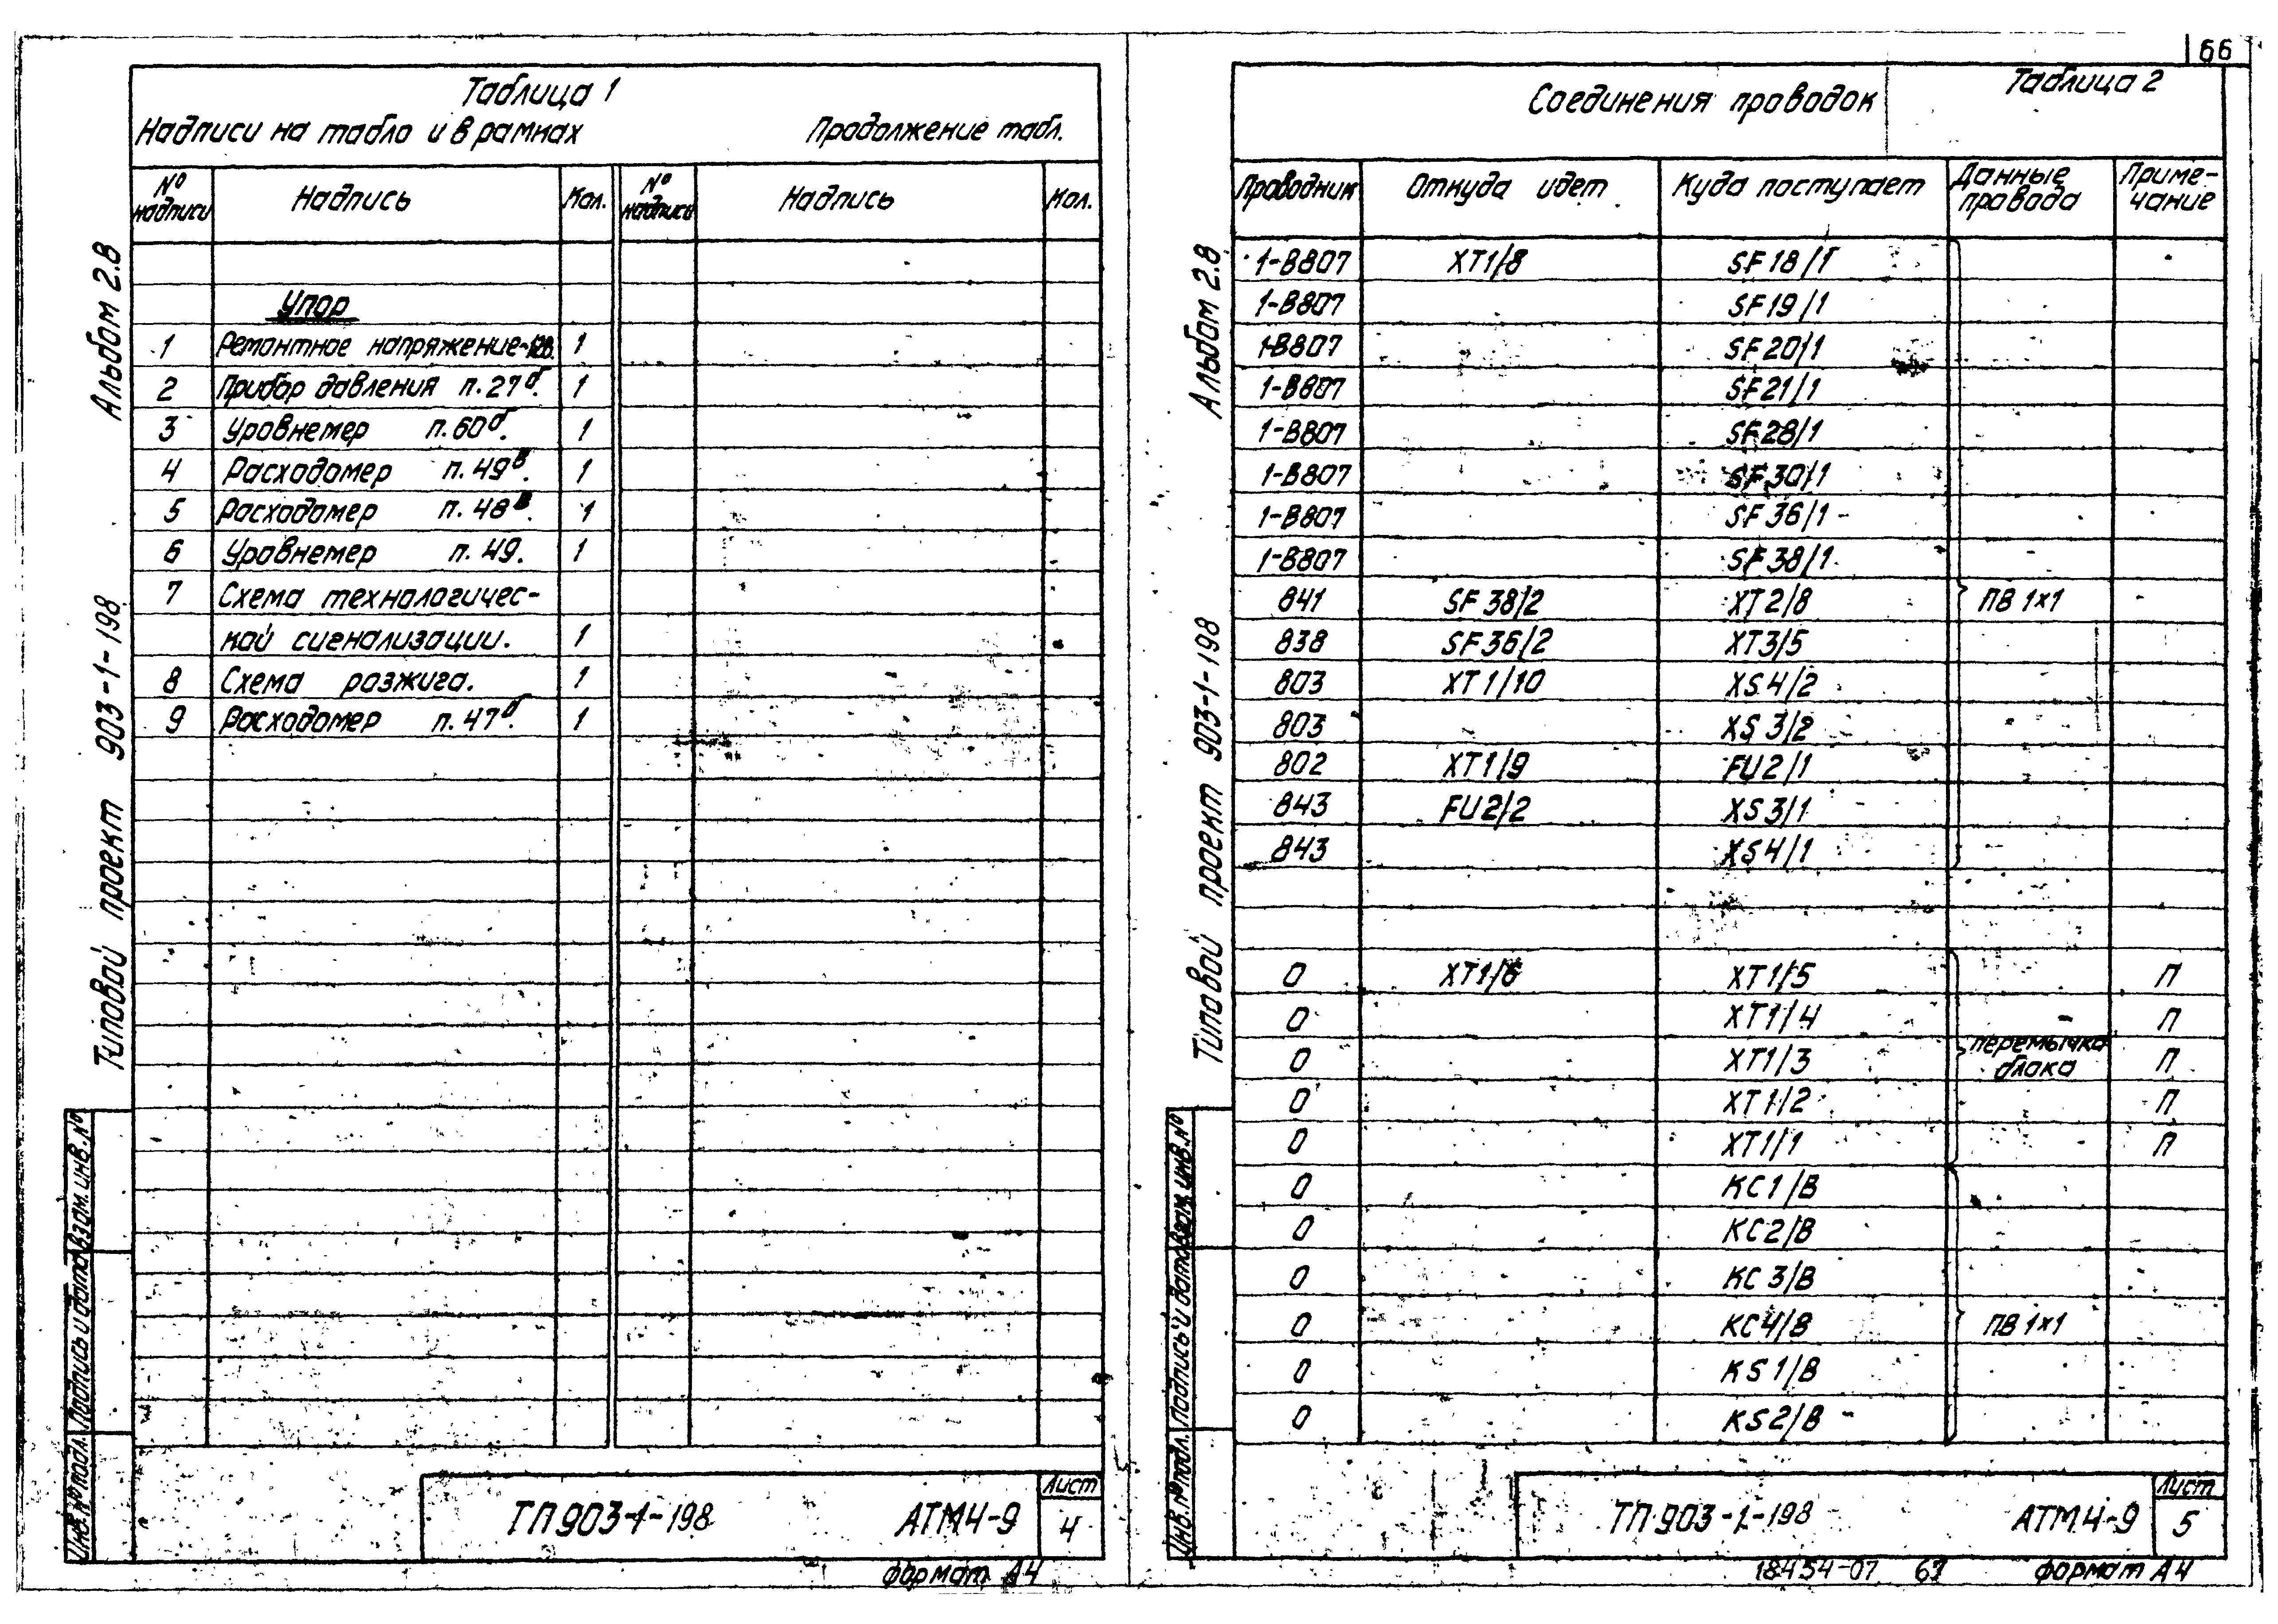 66
Таблица 1
Надписи на табло и в рамках Продолжение табл.
№ надписи Надпись Кол. № надписи Надпись Кол.
Упор
1 Ремонтное напряжение 1
2 Прибор давления п.27б. 1
3 Уровнемер п.60б. 1
4 Расходомер п.49в. 1
5 Расходомер п.48в. 1
6 Уровнемер п.49. 1
7 Схема технологичес-
кой сигнализации. 1
8 Схема розжига. 1
9 Расходомер п.47б. 1
Альбом 2.8
Типовой проект 903-1-198
Взам.инв.№
Подпись и дата
Инв.№ подл.
ТП 903-1-198 АТМ4-9 Лист 4
Формат А4
Таблица 2
Соединения проводок
Проводник Откуда идет Куда поступает Данные провода Приме-чание
1-В807 XT1/8 SF18/1
1-В807 SF19/1
1-В807 SF20/1
1-В807 SF21/1
1-В807 SF28/1
1-В807 SF30/1
1-В807 SF36/1
1-В807 SF38/1
841 SF38/2 XT2/8 ПВ 1×1
838 SF36/2 XT3/5
803 XT1/10 XS4/2
803 XS3/2
802 XT1/9 FU2/1
843 FU2/2 XS3/1
843 XS4/1
0 XT1/6 XT1/5 П
0 XT1/4 П
0 XT1/3 перемычка блока П
0 XT1/2 П
0 XT1/1 П
0 KC1/В
0 KC2/В
0 KC3/В
0 KC4/В ПВ 1×1
0 KS1/В
0 KS2/В
Альбом 2.8
Типовой проект 903-1-198
Взам.инв.№
Подпись и дата
Инв.№ подл.
ТП 903-1-198 АТМ4-9 Лист 5
18454-07 67 Формат А4